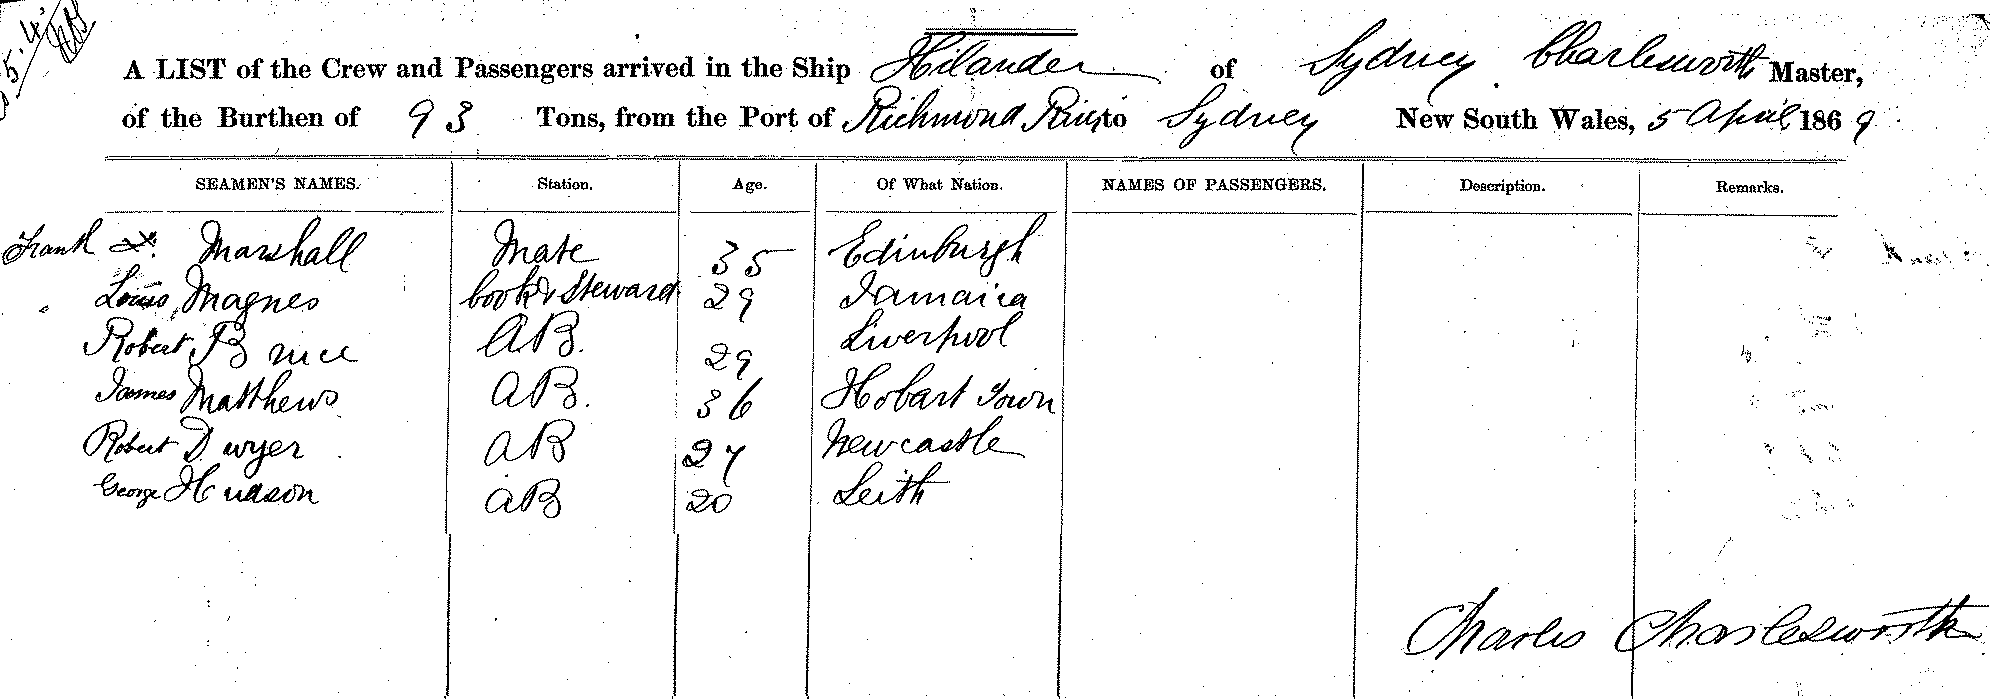 5.4.
A LIST of the Crew and Passengers arrived in the Ship Hilander of Sydney Charlesworth Master,
of the Burthen of 93 Tons, from the Port of Richmond River to Sydney New South Wales, 5 April 1869.
SEAMEN'S NAMES. Station. Age. Of What Nation. NAMES OF PASSENGERS. Description. Remarks.
Frank Marshall Mate 35 Edinburgh
Louis Magnes Cook & Steward 29 Jamaica
Robert Bruce AB. 29 Liverpool
James Matthews AB. 36 Hobart Town
Robert Dwyer AB 27 Newcastle
George Hudson AB 20 Leith
Charles Charlesworth